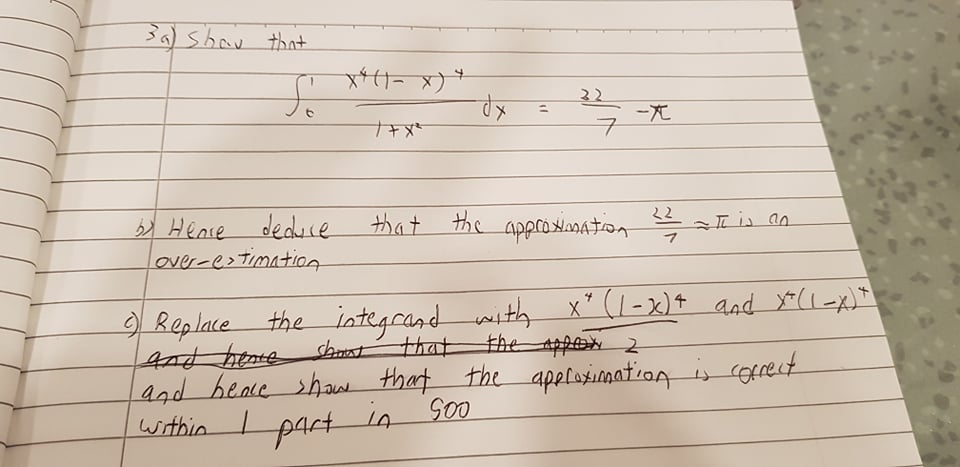 3a) Show that
∫₀¹ x⁴(1-x)⁴ / 1+x² dx = 22/7 - π
b) Hence deduce that the approximation 22/7 ≈ π is an
over-estimation
c) Replace the integrand with x⁴(1-x)⁴ / 2 and x⁴(1-x)⁴
and hence show that the approx
and hence show that the approximation is correct
within 1 part in 500